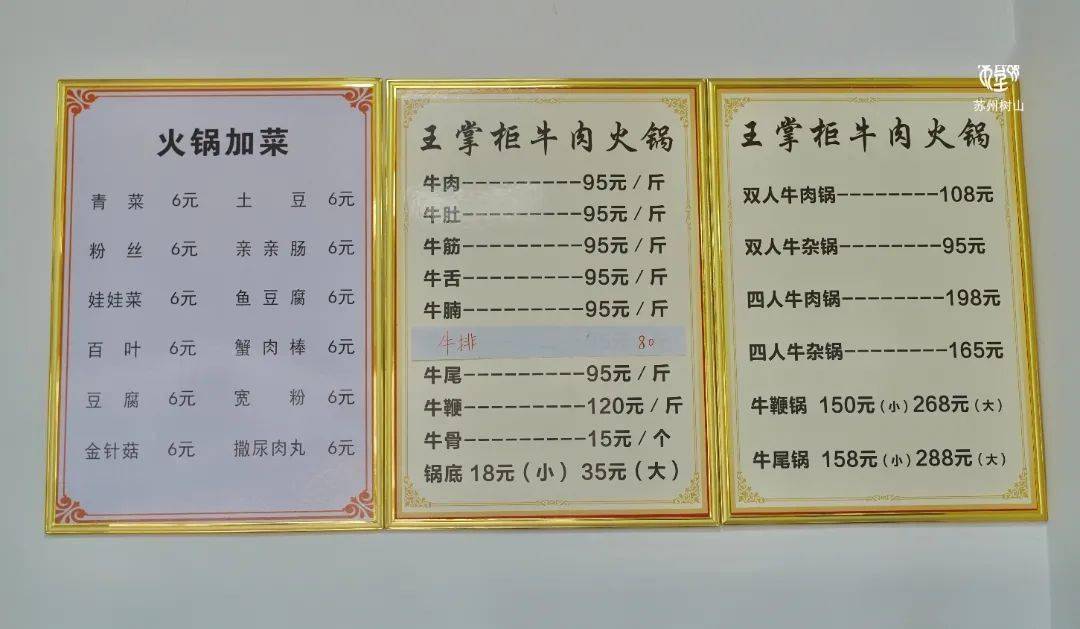 火锅加菜
青菜 6元 土豆 6元
粉丝 6元 亲亲肠 6元
娃娃菜 6元 鱼豆腐 6元
百叶 6元 蟹肉棒 6元
豆腐 6元 宽粉 6元
金针菇 6元 撒尿肉丸 6元
王掌柜牛肉火锅
牛肉----------95元/斤
牛肚----------95元/斤
牛筋----------95元/斤
牛舌----------95元/斤
牛腩----------95元/斤
牛排 80
牛尾----------95元/斤
牛鞭----------120元/斤
牛骨----------15元/个
锅底 18元(小) 35元(大)
王掌柜牛肉火锅
双人牛肉锅---------108元
双人牛杂锅---------95元
四人牛肉锅---------198元
四人牛杂锅---------165元
牛鞭锅 150元(小)268元(大)
牛尾锅 158元(小)288元(大)
苏州树山